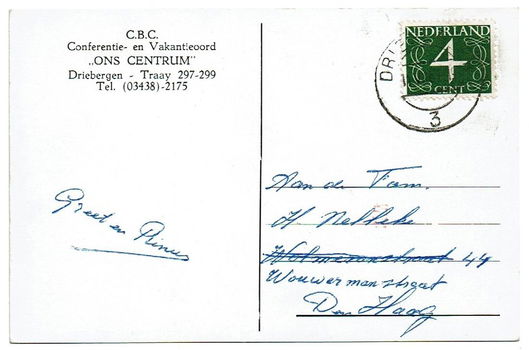 C.B.C.
Conferentie- en Vakantieoord
„ONS CENTRUM"
Driebergen - Traay 297-299
Tel. (03438)-2175
NEDERLAND
4
CENT
DRI
3
Greet en Rinus
Aan de Fam.
H
44
Wouwermanstraat
Den Haag